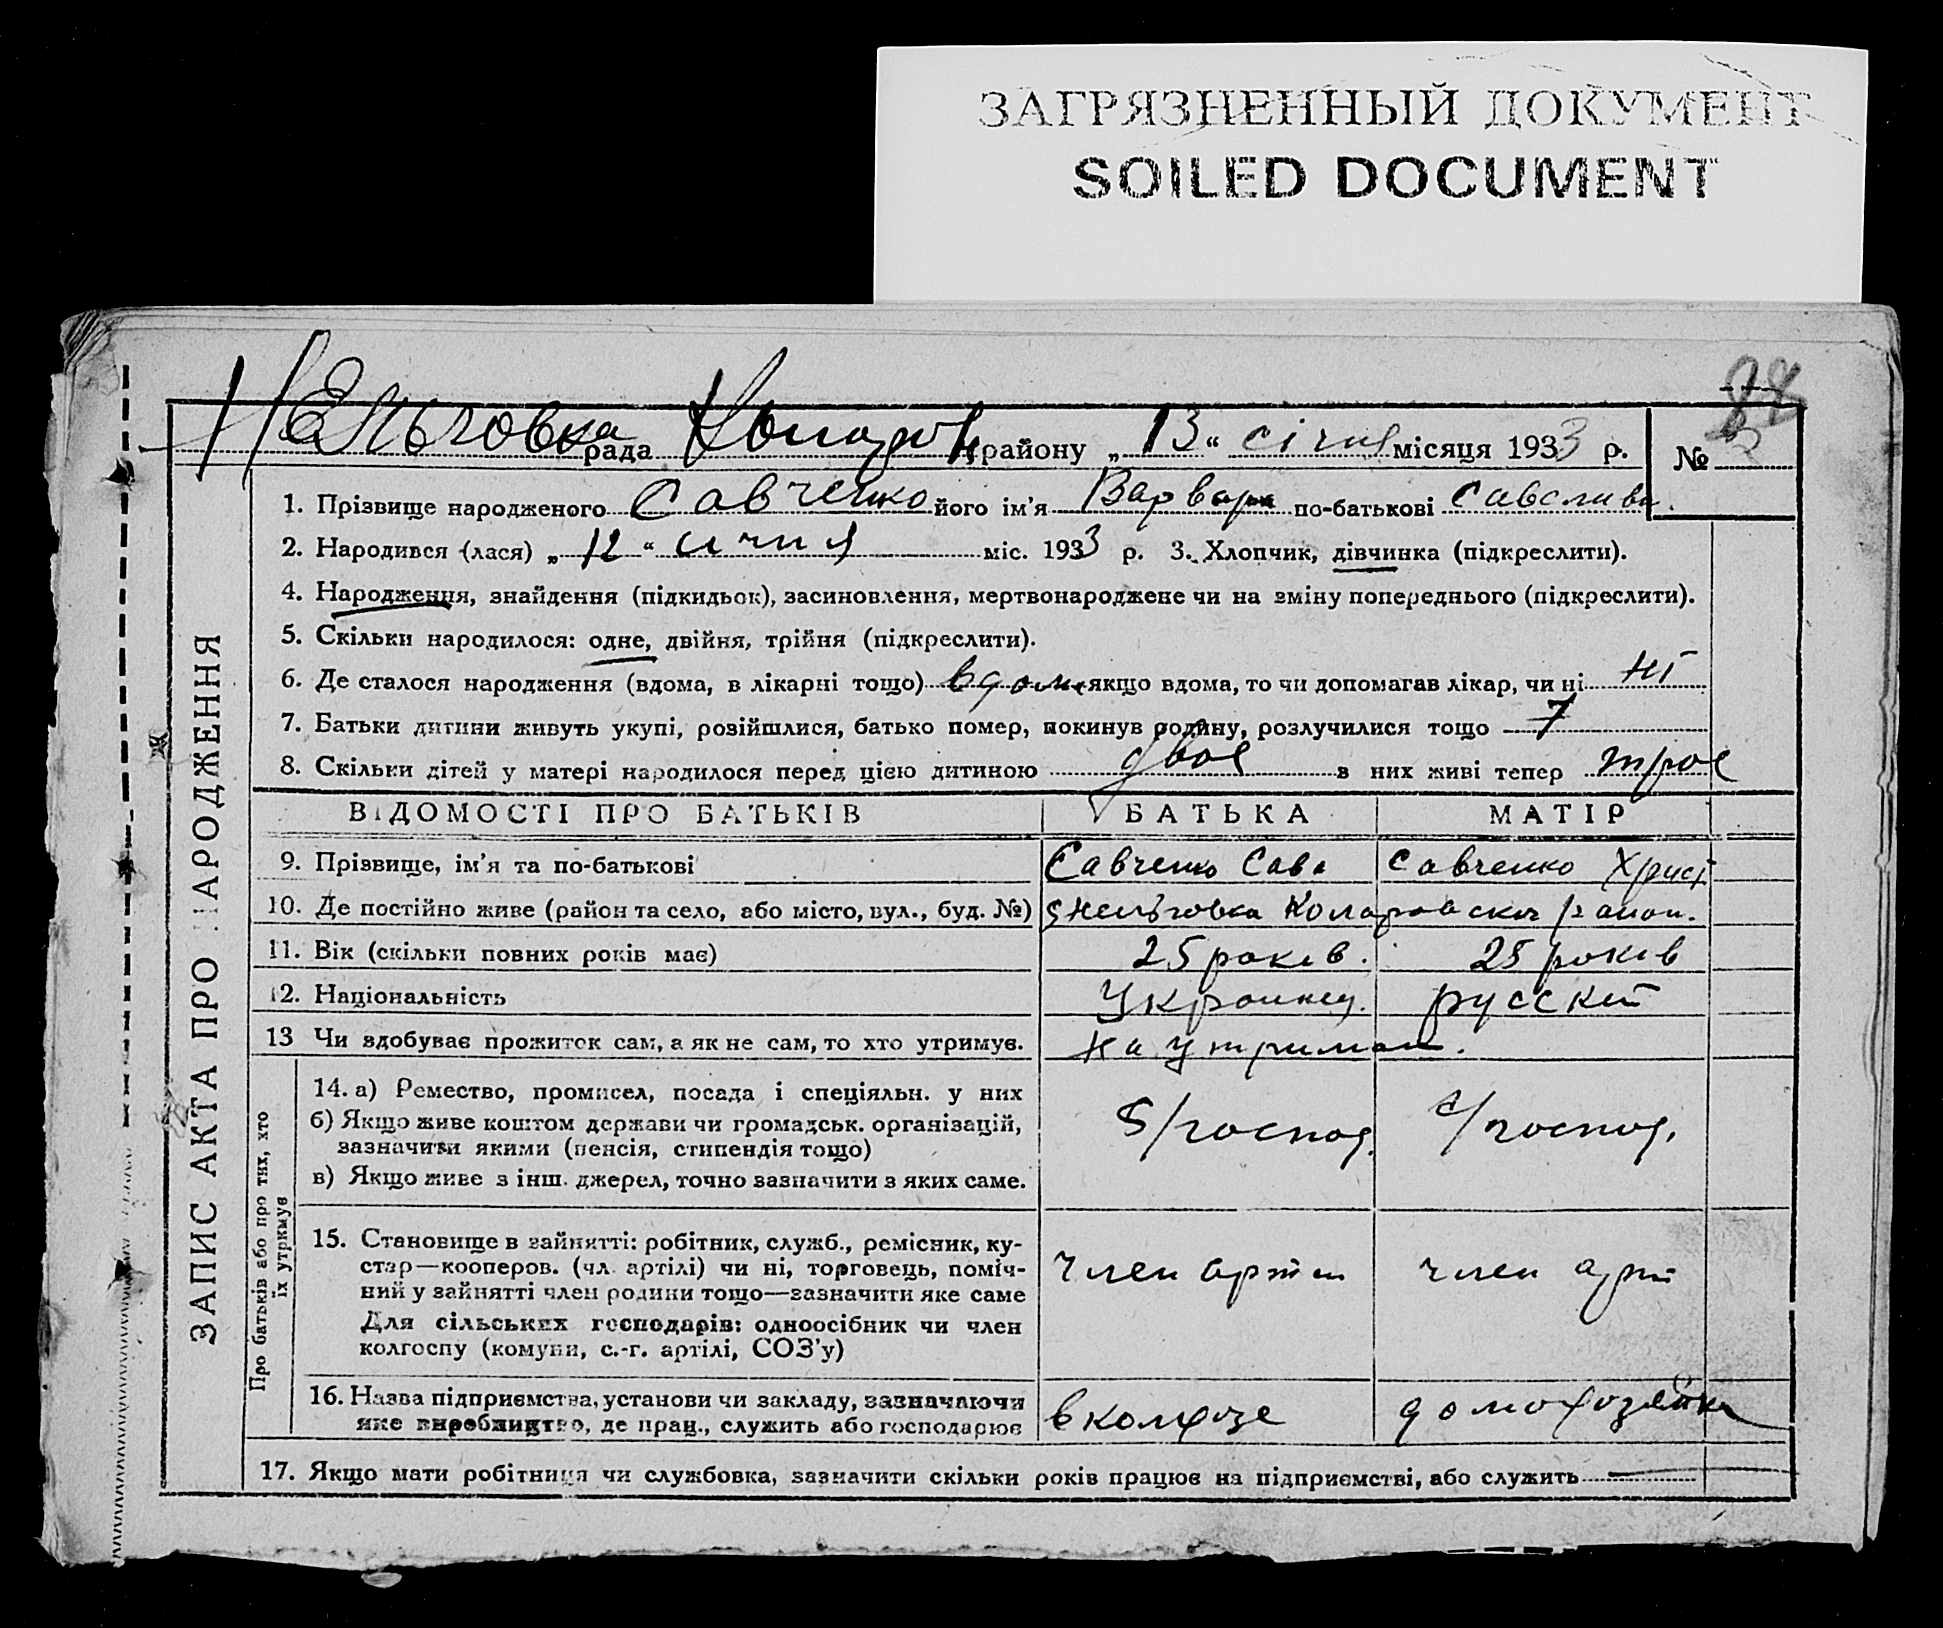 ЗАГРЯЗНЕННЫЙ ДОКУМЕНТ
SOILED DOCUMENT
88
Нельговка рада Коларовск району „13“ січня місяця 1933 р. №
1. Прізвище народженого Савченко його ім'я Варвара по-батькові
2. Народився (лася) „12“ січня міс. 1933 р. 3. Хлопчик, дівчинка (підкреслити).
4. Народження, знайдення (підкидьок), засиновлення, мертвонароджене чи на зміну попереднього (підкреслити).
5. Скільки народилося: одне, двійня, трійня (підкреслити).
6. Де сталося народження (вдома, в лікарні тощо) вдома якщо вдома, то чи допомагав лікар, чи ні ні
7. Батьки дитини живуть укупі, розійшлися, батько помер, покинув родину, розлучилися тощо 7
8. Скільки дітей у матері народилося перед цією дитиною двое з них живі тепер трое
ВІДОМОСТІ ПРО БАТЬКІВ БАТЬКА МАТІР
9. Прізвище, ім'я та по-батькові Савченко Сава Савченко Христ
10. Де постійно живе (район та село, або місто, вул., буд. №) Нельговка Коларовский район.
11. Вік (скільки повних років має) 25 років. 25 років
12. Національність Украинец. русский
13 Чи здобуває прожиток сам, а як не сам, то хто утримує. На утриман.
Про батьків або про тих, хто їх утримує
14. а) Ремество, промисел, посада і спеціяльн. у них
б) Якщо живе коштом держави чи громадськ. організацій,
зазначити якими (пенсія, стипендія тощо)
в) Якщо живе з інш. джерел, точно зазначити з яких саме.
S/господ. с/господ.
15. Становище в зайнятті: робітник, служб., ремісник, ку-
стар—кооперов. (чл. артілі) чи ні, торговець, поміч-
ний у зайнятті член родини тощо—зазначити яке саме
Для сільських господарів: одноосібник чи член
колгоспу (комуни, с.-г. артілі, СОЗ'у)
член артіл член арт
16. Назва підприємства, установи чи закладу, зазначаючи
яке виробництво, де прац., служить або господарює
в колхозе домохозяйка
17. Якщо мати робітниця чи службовка, зазначити скільки років працює на підприємстві, або служить
ЗАПИС АКТА ПРО НАРОДЖЕННЯ